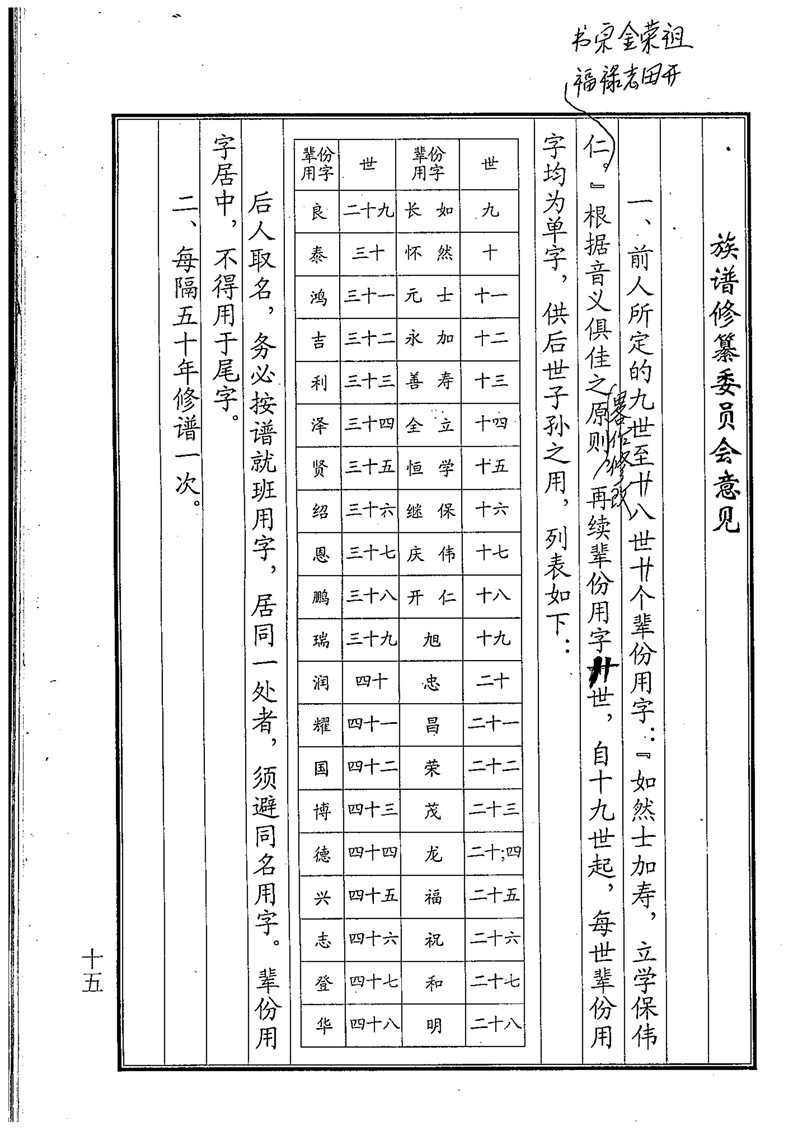 书宗金荣祖
福禄田开
族谱修纂委员会意见
一、前人所定的九世至廿八世廿个辈份用字：『如然士加寿，立学保伟
仁。』根据音义俱佳之原则，再续辈份用字世，自十九世起，每世辈份用
畧作修改
字均为单字，供后世子孙之用，列表如下：
世 辈份用字 世 辈份用字
九 如 长 二十九 良
十 然 怀 三十 泰
十一 士 元 三十一 鸿
十二 加 永 三十二 吉
十三 寿 善 三十三 利
十四 立 全 三十四 泽
十五 学 恒 三十五 贤
十六 保 继 三十六 绍
十七 伟 庆 三十七 恩
十八 仁 开 三十八 鹏
十九 旭 三十九 瑞
二十 忠 四十 润
二十一 昌 四十一 耀
二十二 荣 四十二 国
二十三 茂 四十三 博
二十四 龙 四十四 德
二十五 福 四十五 兴
二十六 祝 四十六 志
二十七 和 四十七 登
二十八 明 四十八 华
后人取名，务必按谱就班用字，居同一处者，须避同名用字。辈份用
字居中，不得用于尾字。
二、每隔五十年修谱一次。
十五